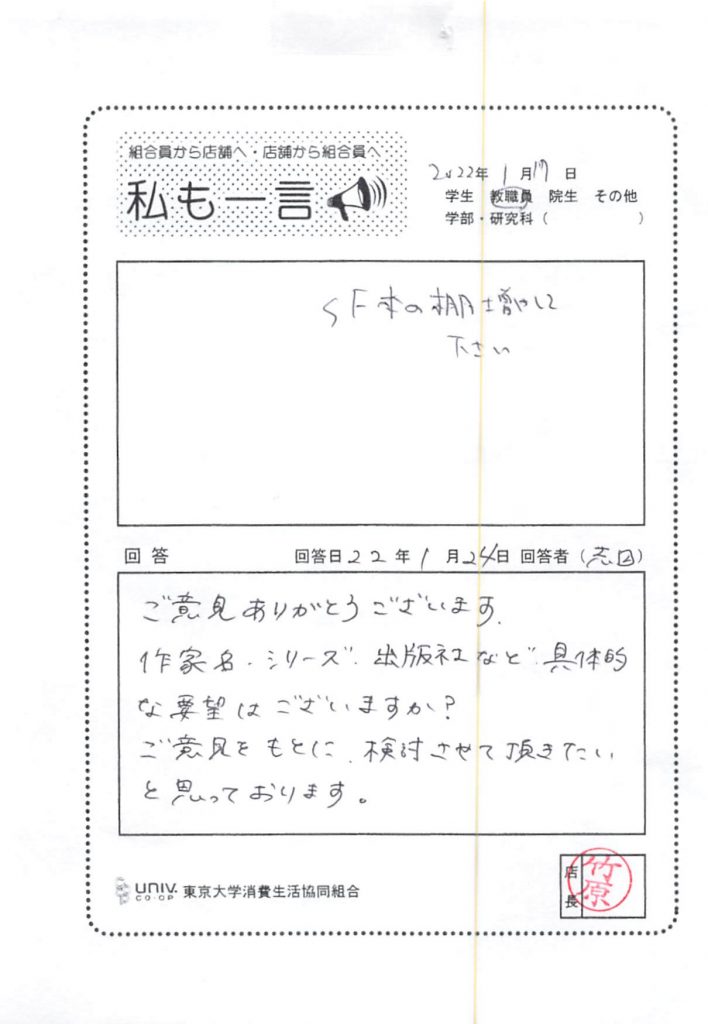 組合員から店舗へ・店舗から組合員へ
私も一言
2022年 1月17日
学生 教職員 院生 その他
学部・研究科( )
SF本の棚増やして
下さい
回答 回答日22年1月24日 回答者(志田)
ご意見ありがとうございます。
作家名・シリーズ、出版社など、具体的
な要望はございますか?
ご意見をもとに、検討させて頂きたい
と思っております。
UNIV. CO-OP 東京大学消費生活協同組合
店長 竹原